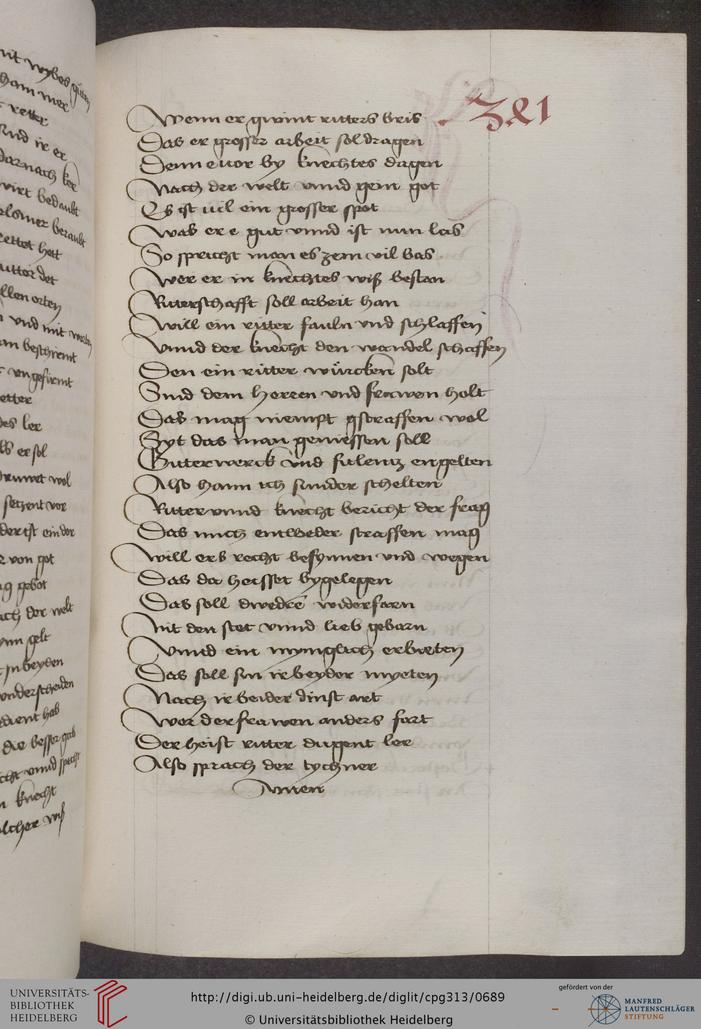 Wenn er gwint ritters breis
381
Das er grosser arbeit sol dragen
Denn e vor by knechtes dagen
Nach der welt vnnd gein got
Es ist vil ein grosser spot
Was er e gut vnnd ist nun las
So spricht man es zem vil bas
Wer er in knechtes wiß bestan
Ritterschafft soll arbeit han
Will ein ritter fauln vnd schlaffen
Vnnd der knecht den wandel schaffen
Den ein ritter würcken solt
Sind dem herren vnd frawen holt
Das mag niempt gstraffen wol
Syt das man geniessen soll
Guter werck vnd fulentz engelten
Also hann ich sunder schelten
Ritter vnnd knecht bericht der frag
Das mich entweder straffen mag
Will ers recht besynnen vnd wegen
Das da heisset bygelegen
Das soll dwedrē widerfarn
Mit den stet vnnd lieb gebarn
Vnnd ein mynglich erbieten
Das soll sin ir beyder myeten
Nach ir beider dinst art
Wer der frawen anders fart
Der heist ritter dugent ler
Also sprach der tychner
Amen
UNIVERSITÄTS-
BIBLIOTHEK
HEIDELBERG
http://digi.ub.uni-heidelberg.de/diglit/cpg313/0689
© Universitätsbibliothek Heidelberg
gefördert von der
MANFRED
LAUTENSCHLÄGER
STIFTUNG